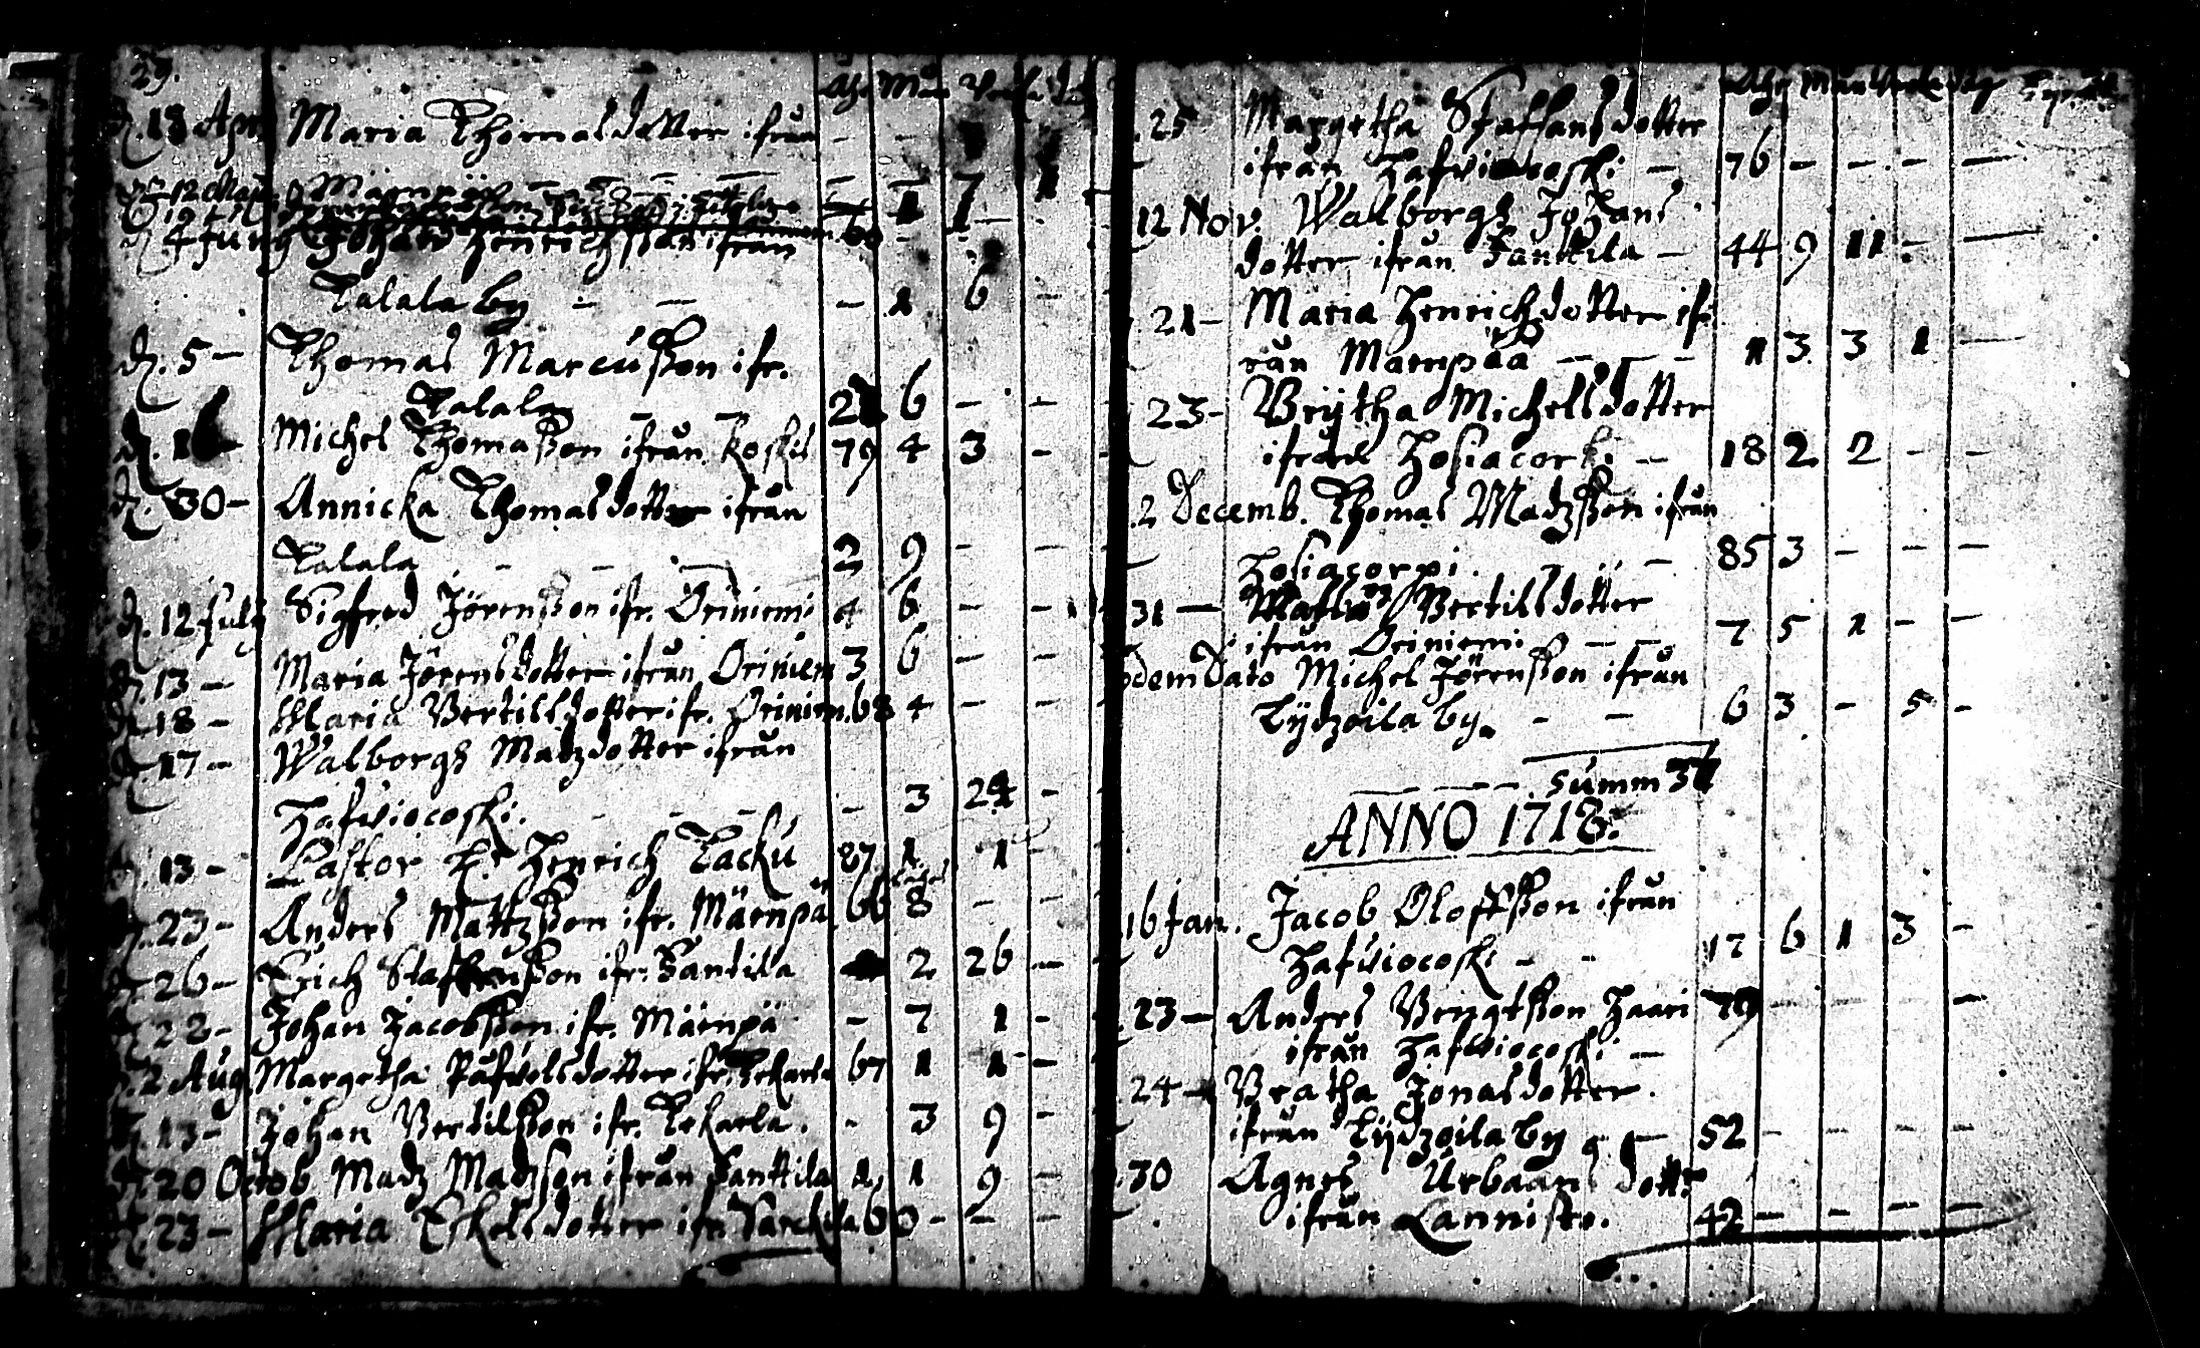 29.
d. 18 Apr Maria Thomasdotter ifrån - -
Mäenpää - - - - - 7 1
d. 4 Juny Johan Henrichsson ifrån
Talala by - - - 1 6 -
d. 5 - Thomas Marcusson ifr.
Talala - - 6 - -
d. 16 Michel Thomasson ifrån Koskil 79 4 3 -
d. 30 - Annicka Thomasdotter ifrån
Talala - - - 2 9 - -
d. 12 July Sigfred Jörensson ifr. Oriniemi 4 6 - -
d. 13 - Maria Jörensdotter ifrån Oriniem 3 6 - -
d. 18 - Maria Bertillsdotter ifr. Oriniem. 68 4 - -
d. 17 - Walborg Matzdotter ifrån
Hafwiocoski. - - - - 3 24 -
d. 13 - Pastor Hr Henrich Tacku 87 1 1 -
d. 23 - Anders Mattzsson ifr. Mäenpä 66 8 - -
d. 26 - Erich Staffensson ifr. Santila 2 26 -
d. 28 - Johan Jacobsson ifr. Mäenpä - 7 1 -
d. 2 Aug Margetha Påfwelsdotter ifr. 67 1 1 -
d. 13 - Johan Bertilsson ifr. Tekarla. - 3 9 -
d. 20 Octob Madz Madzson ifrån Santtila 1 1 9 -
d. 23 - Maria Eskelsdotter ifr. 60 - - -
25 Margetha Staffansdotter
ifrån Hafwiocoski - 76 - - - -
12 Nov. Walborg Johans
dotter ifrån Santtila - 44 9 11 - -
21 - Maria Henrichsdotter if
rån Mäenpää - - - 1 3 3 1 -
23 - Brijtha Michelsdotter
ifrån Hosiacorki - 18 2 2 - -
2 Decemb. Thomas Madzsson ifrån
Hosiacorpi - - - 85 3 - - -
31 - Bertilsdotter
ifrån Oriniemi - - 7 5 1 - -
odem Dato Michel Jörensson ifrån
Lydzoila by. - - 6 3 - 5 -
- - - - Summ
ANNO 1718.
16 Jan. Jacob Oloffsson ifrån
Hafwiocoski - - 17 6 1 3 -
23 - Anders Bengtsson Haari 79 - - - -
ifrån Hafwiocoski -
24 - Beatha Jonasdotter.
ifrån Lydzoila by - - 52 - - - -
30 Agnes Urbaans dotter
ifrån Lannisto. 42 - - - -